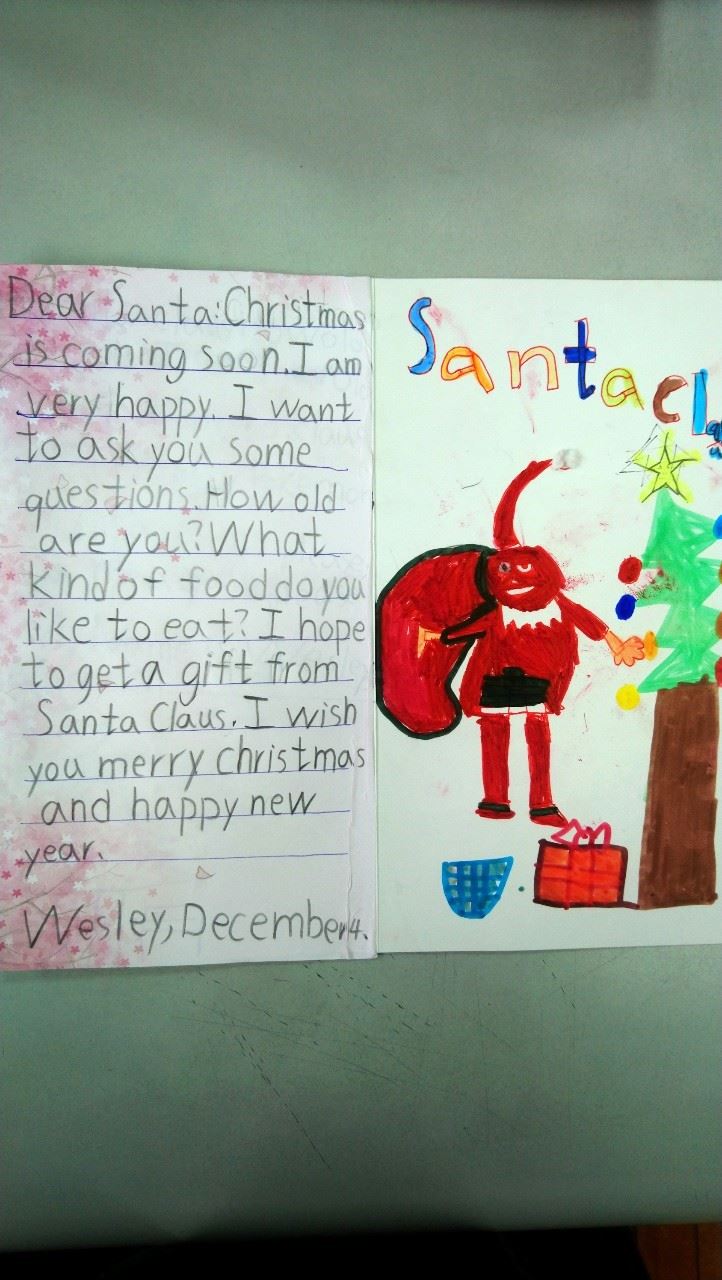 Dear Santa:Christmas
is coming soon.I am
very happy. I want
to ask you some
questions.How old
are you?What
kind of food do you
like to eat? I hope
to get a gift from
Santa Claus. I wish
you merry christmas
and happy new
year.
Wesley, December 4.
Santacl